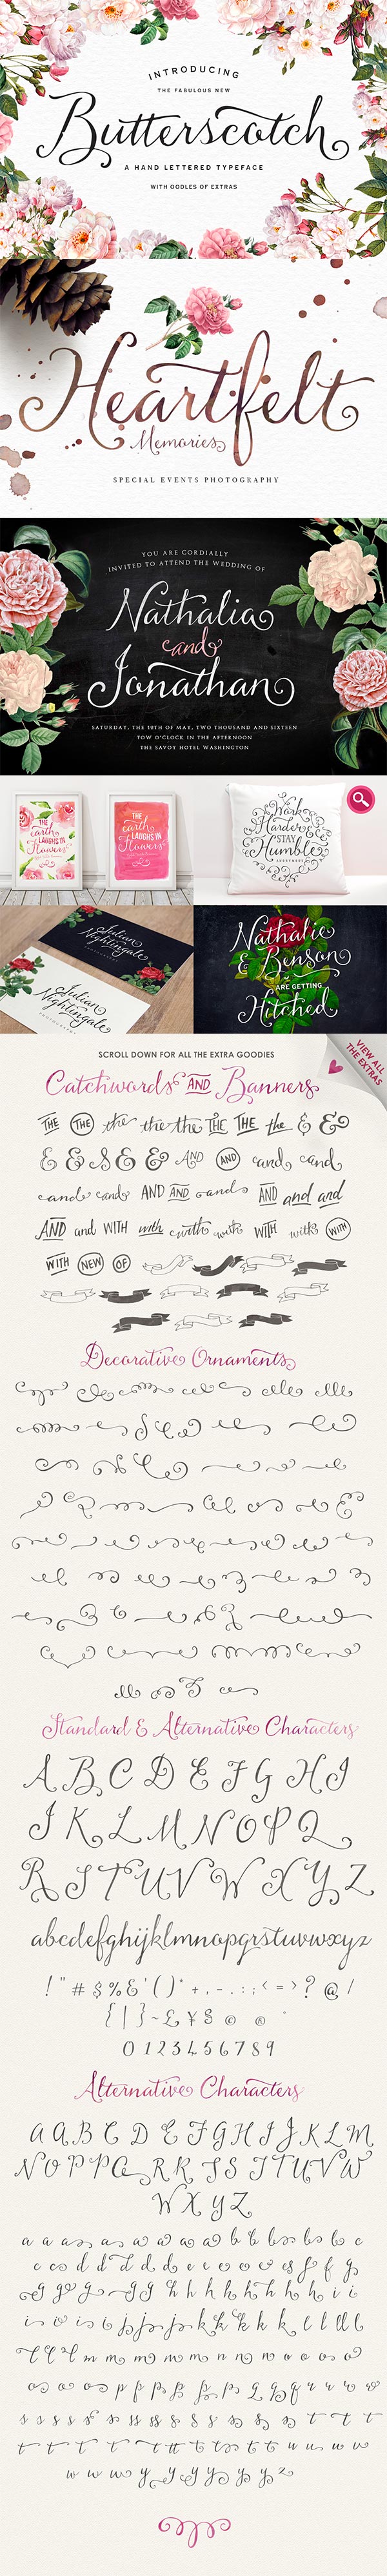 INTRODUCING
THE FABULOUS NEW
Butterscotch
A HAND LETTERED TYPEFACE
WITH OODLES OF EXTRAS
Heartfelt
Memories
SPECIAL EVENTS PHOTOGRAPHY
YOU ARE CORDIALLY
INVITED TO ATTEND THE WEDDING OF
Nathalia
and
Jonathan
SATURDAY, THE 19TH OF MAY, TWO THOUSAND AND SIXTEEN
TOW O'CLOCK IN THE AFTERNOON
THE SAVOY HOTEL WASHINGTON
THE
earth
LAUGHS IN
Flowers
THE
earth
LAUGHS IN
Flowers
Work
Harder &
STAY
Humble
Julian
Nightingale
Julian
Nightingale
PHOTOGRAPHY
Nathalie
& Benson
ARE GETTING
Hitched
SCROLL DOWN FOR ALL THE EXTRA GOODIES
VIEW ALL
THE EXTRAS
Catchwords AND Banners
THE THE the the the THE THE the & &
& & & & & AND AND and and
and and AND AND and AND and and
AND and WITH with with with WITH with WITH
WITH NEW OF
Decorative Ornaments
Standard & Alternative Characters
A B C D E F G H I
J K L M N O P Q
R S T U V W X Y Z
abcdefghijklmnopqrstuvwxyz
! " # $ % & ' ( ) * + , - . : ; < = > ? @ /
{ | } ~ £ ¥ $ © ®
0 1 2 3 4 5 6 7 8 9
Alternative Characters
A A B C D E F G H I J K L M
N O P P Q R R S S T T U V W
W X Y Z